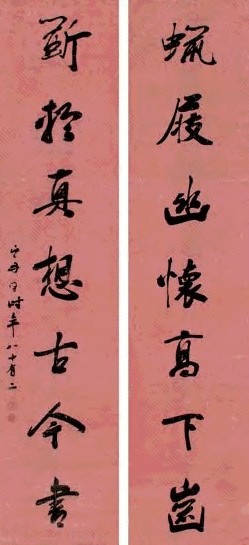 蠟屐幽懷高下齒
斲輪真想古今書
時年八十有二